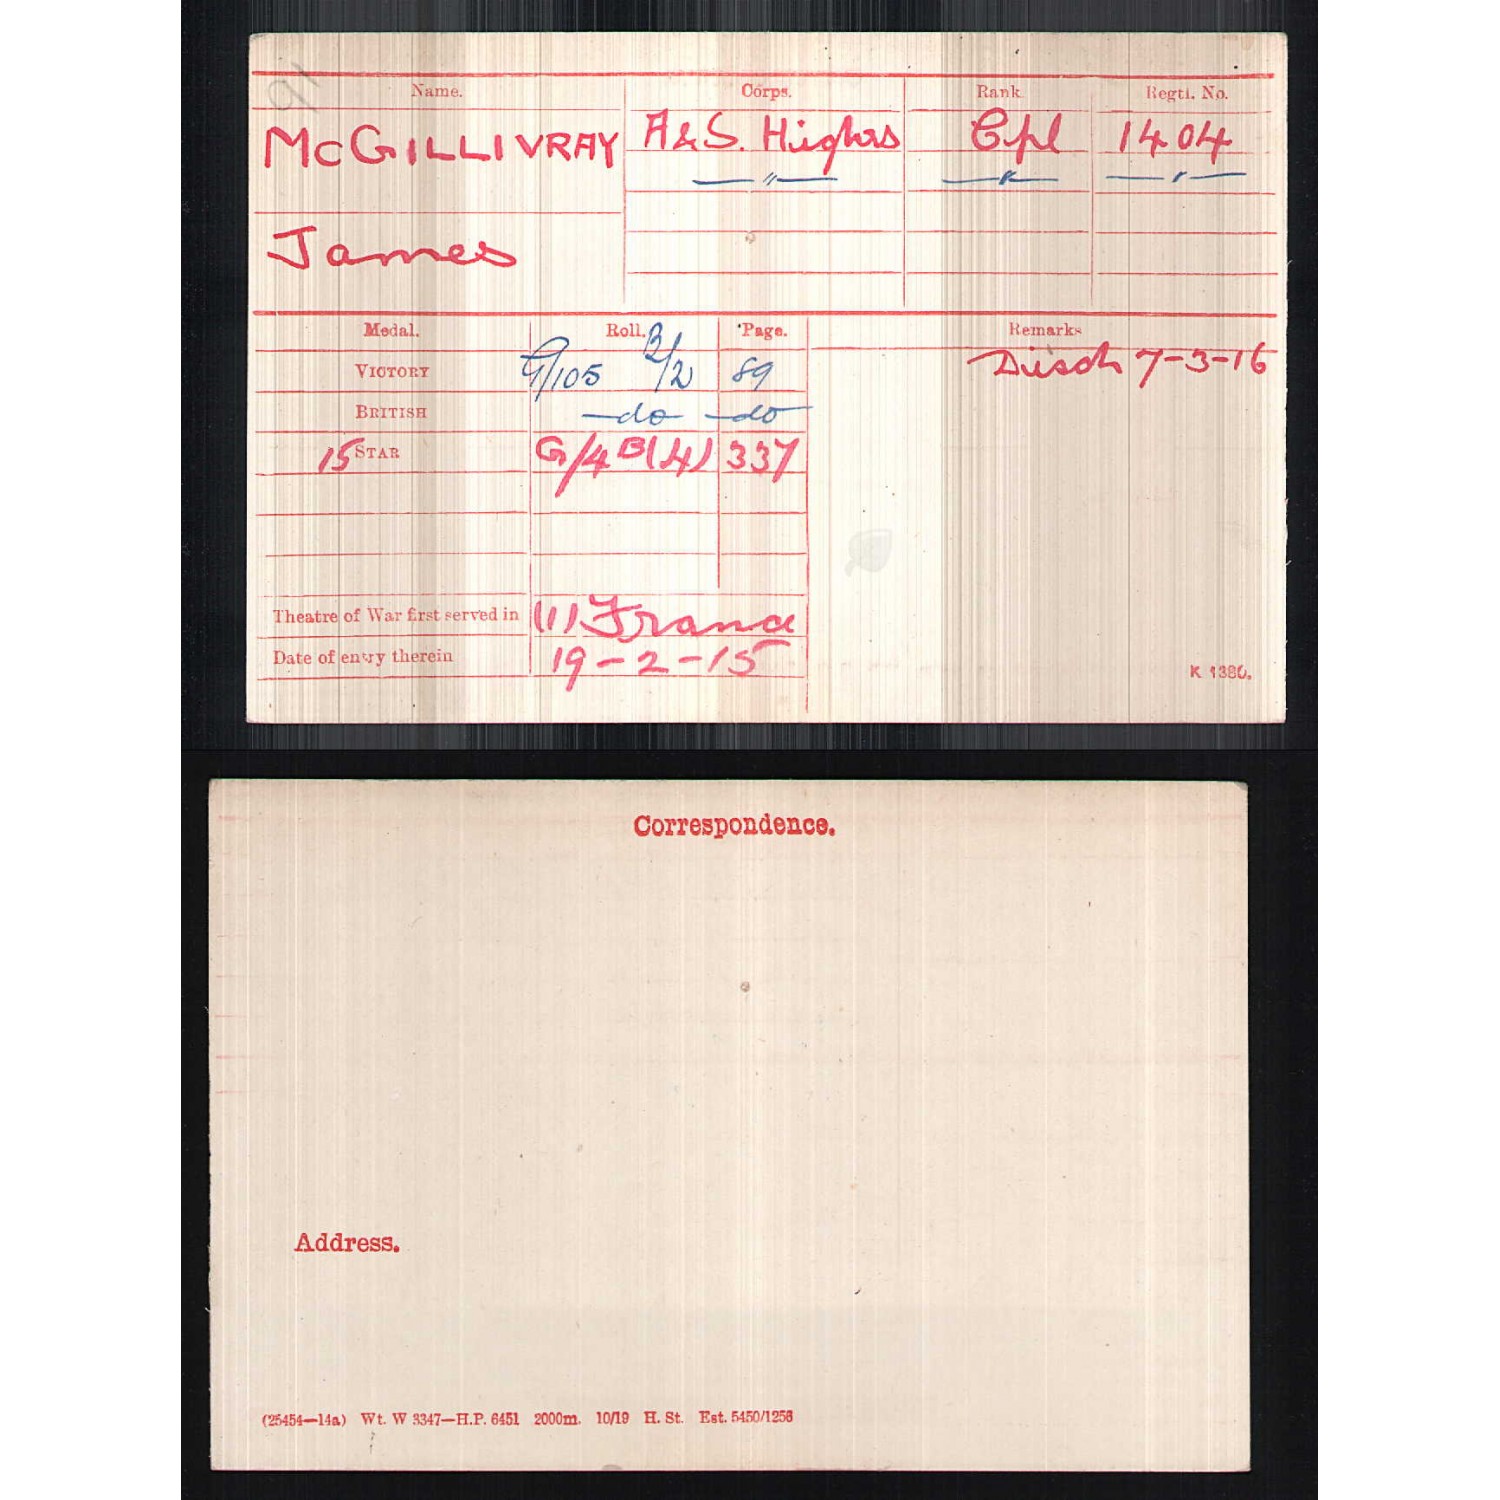 Name. Corps. Rank Regtl. No.
McGILLIVRAY A&S. Highrs Cpl 1404
— " — — " — — " —
James
Medal. Roll. Page. Remarks
VICTORY G/105 B/2 89 Disch 7-3-16
BRITISH —do— —do—
15 STAR G/4 B(4) 337
Theatre of War first served in (1) France
Date of entry therein 19-2-15
K 1380.
Correspondence.
Address.
(25454—14a) Wt. W 3347—H.P. 6451 2000m. 10/19 H. St. Est. 5450/1256